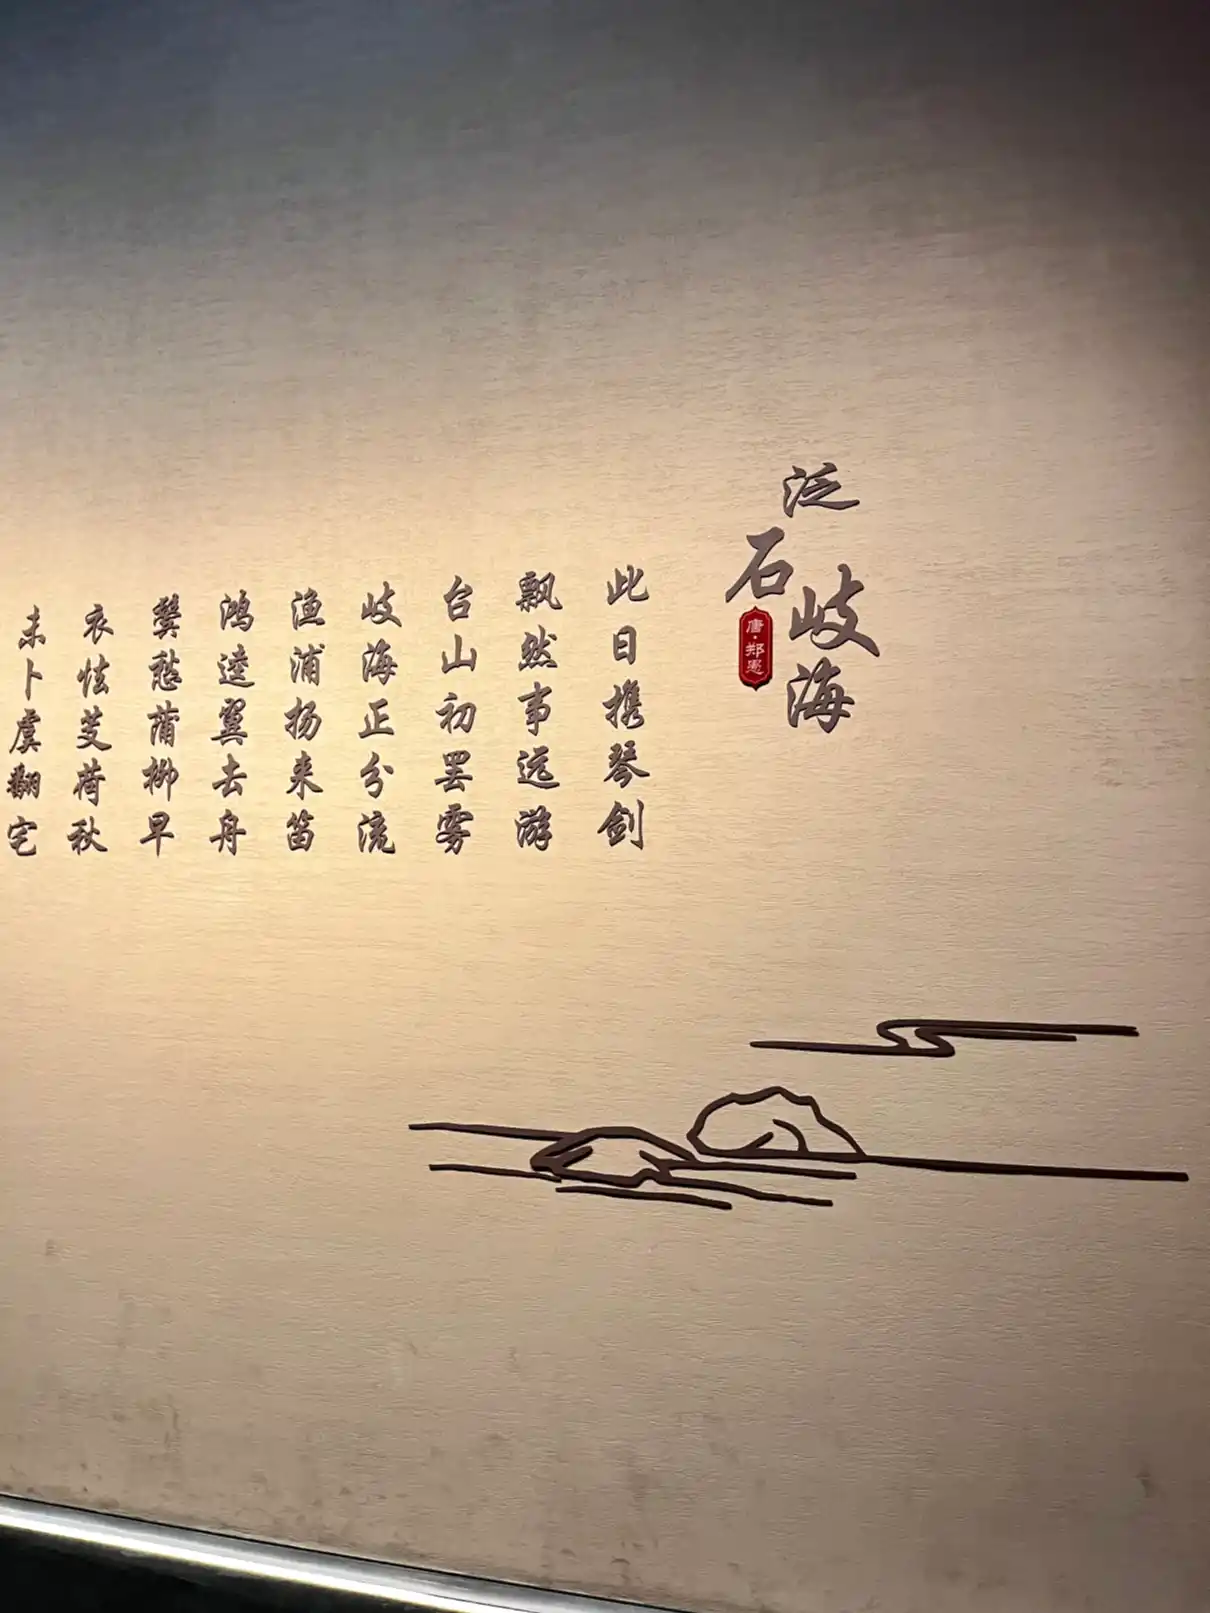 泛石岐海
唐·郑愚
此日携琴剑
飘然事远游
台山初罢雾
岐海正分流
渔浦扬来笛
鸿逵翼去舟
鬓愁蒲柳早
衣怯芰荷秋
未卜虞翻宅